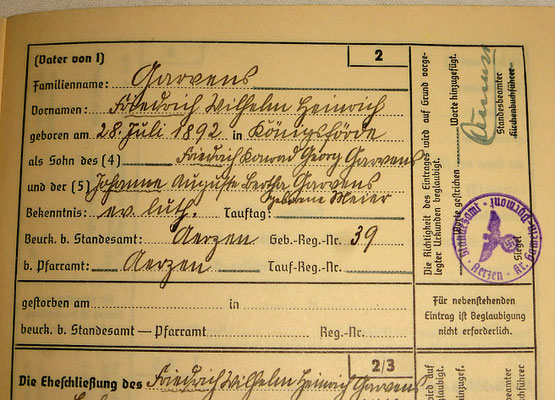 (Vater von 1)
2
Familienname: Garvens
Vornamen: Friedrich Wilhelm Heinrich
geboren am 28. Juli 1892 in Königsförde
als Sohn des (4) Friedrich Konrad Georg Garvens
und der (5) Johanne Auguste Bertha Garvens
geborene Meier
Bekenntnis: ev. luth. Tauftag:
Beurk. b. Standesamt: Aerzen Geb.-Reg.-Nr. 39
b. Pfarramt: Aerzen Tauf-Reg.-Nr.
gestorben am in
beurk. b. Standesamt — Pfarramt Reg.-Nr.
Die Richtigkeit des Eintrages wird auf Grund vorge-
legter Urkunden beglaubigt.
Worte gestrichen
Worte hinzugefügt.
Siegel
Standesbeamter
Kirchenbuchführer
Standesamt Aerzen Kr. Hameln-Pyrmont
Für nebenstehenden
Eintrag ist Beglaubigung
nicht erforderlich.
2/3
Die Eheschließung des Friedrich Wilhelm Heinrich Garvens
wird auf
beglaubigt
hinzugef.